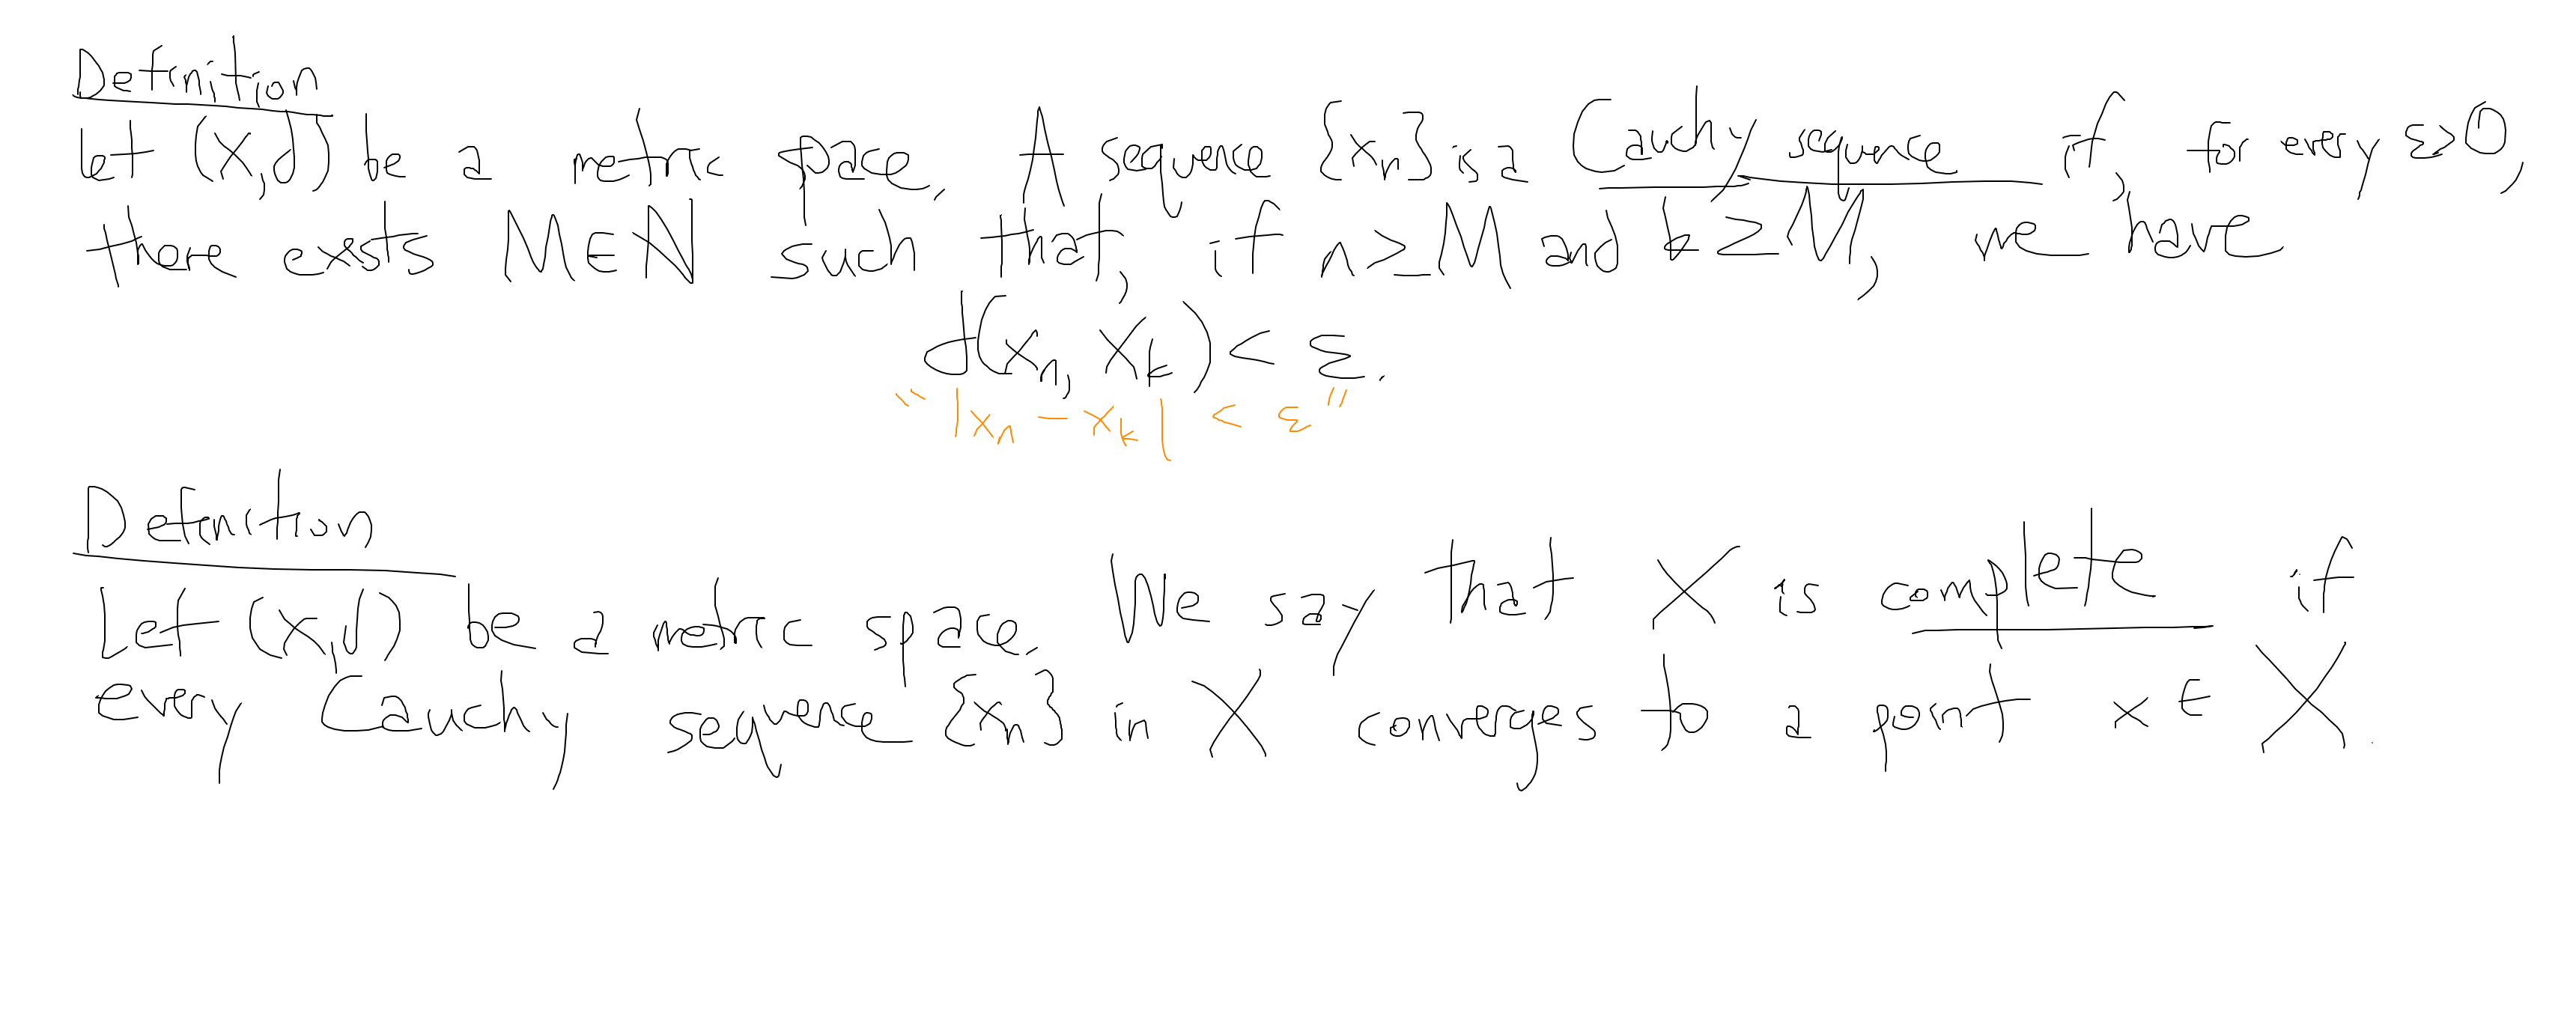 Definition
Let (X,d) be a metric space. A sequence {xₙ} is a Cauchy sequence if, for every ε>0,
there exists M∈ℕ such that, if n≥M and k≥M, we have
d(xₙ, xₖ) < ε.
"|xₙ - xₖ| < ε"
Definition
Let (X,d) be a metric space. We say that X is complete if
every Cauchy sequence {xₙ} in X converges to a point x∈X.